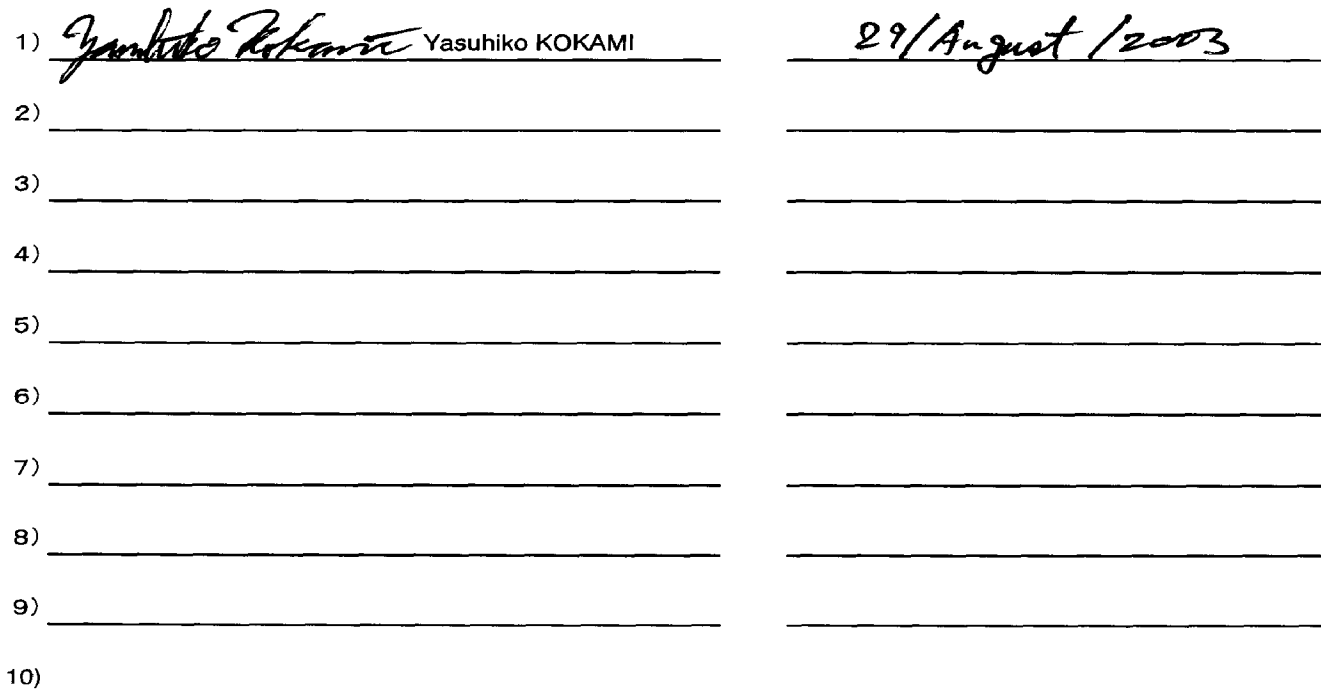 1) Yasuhiko Kokami Yasuhiko KOKAMI 29/August/2003
2)
3)
4)
5)
6)
7)
8)
9)
10)